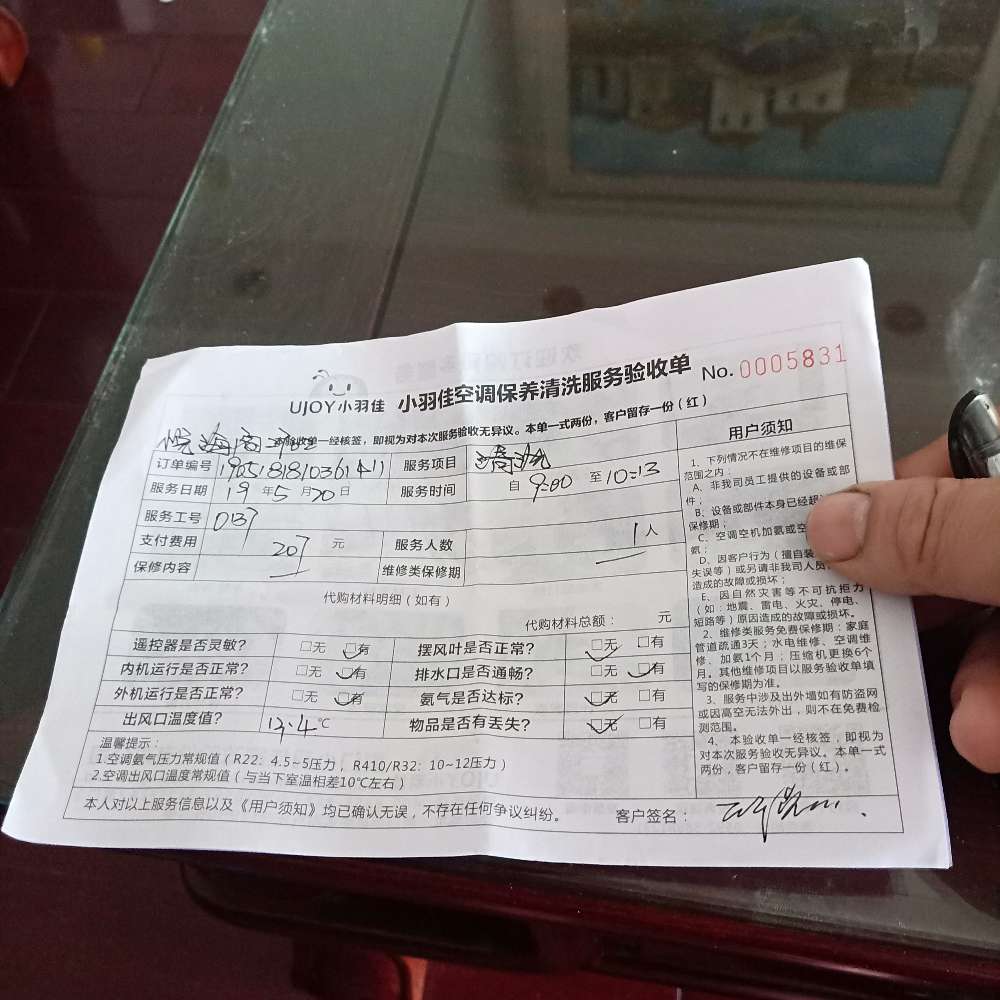 UJOY小羽佳 小羽佳空调保养清洗服务验收单 No. 0005831
本验收单一经核签，即视为对本次服务验收无异议。本单一式两份，客户留存一份（红）
订单编号 服务项目 清洗
服务日期 19 年 5 月 20 日 服务时间 自 9:00 至 10:13
服务工号 0137
支付费用 207 元 服务人数 1 人
保修内容 维修类保修期
代购材料明细（如有）
代购材料总额： 元
遥控器是否灵敏? □无 □有 摆风叶是否正常? □无 □有
内机运行是否正常? □无 □有 排水口是否通畅? □无 □有
外机运行是否正常? □无 □有 氨气是否达标? □无 □有
出风口温度值? 13.4 ℃ 物品是否有丢失? □无 □有
温馨提示：
1.空调氨气压力常规值（R22：4.5~5压力， R410/R32：10~12压力）
2.空调出风口温度常规值（与当下室温相差10℃左右）
本人对以上服务信息以及《用户须知》均已确认无误，不存在任何争议纠纷。 客户签名：
用户须知
1、下列情况不在维修项目的维保
范围之内：
A、非我司员工提供的设备或部
件；
B、设备或部件本身已经超
保修期；
C、空调空机加氨或空
氨；
D、因客户行为（擅自装
失误等）或另请非我司人员
造成的故障或损坏；
E、因自然灾害等不可抗拒力
（如：地震、雷电、火灾、停电、
短路等）原因造成的故障或损坏。
2、维修类服务免费保修期：家庭
管道疏通3天；水电维修、空调维
修、加氨1个月；压缩机更换6个
月。其他维修项目以服务验收单填
写的保修期为准。
3、服务中涉及出外墙如有防盗网
或因高空无法外出，则不在免费检
测范围。
4、本验收单一经核签，即视为
对本次服务验收无异议。本单一式
两份，客户留存一份（红）。